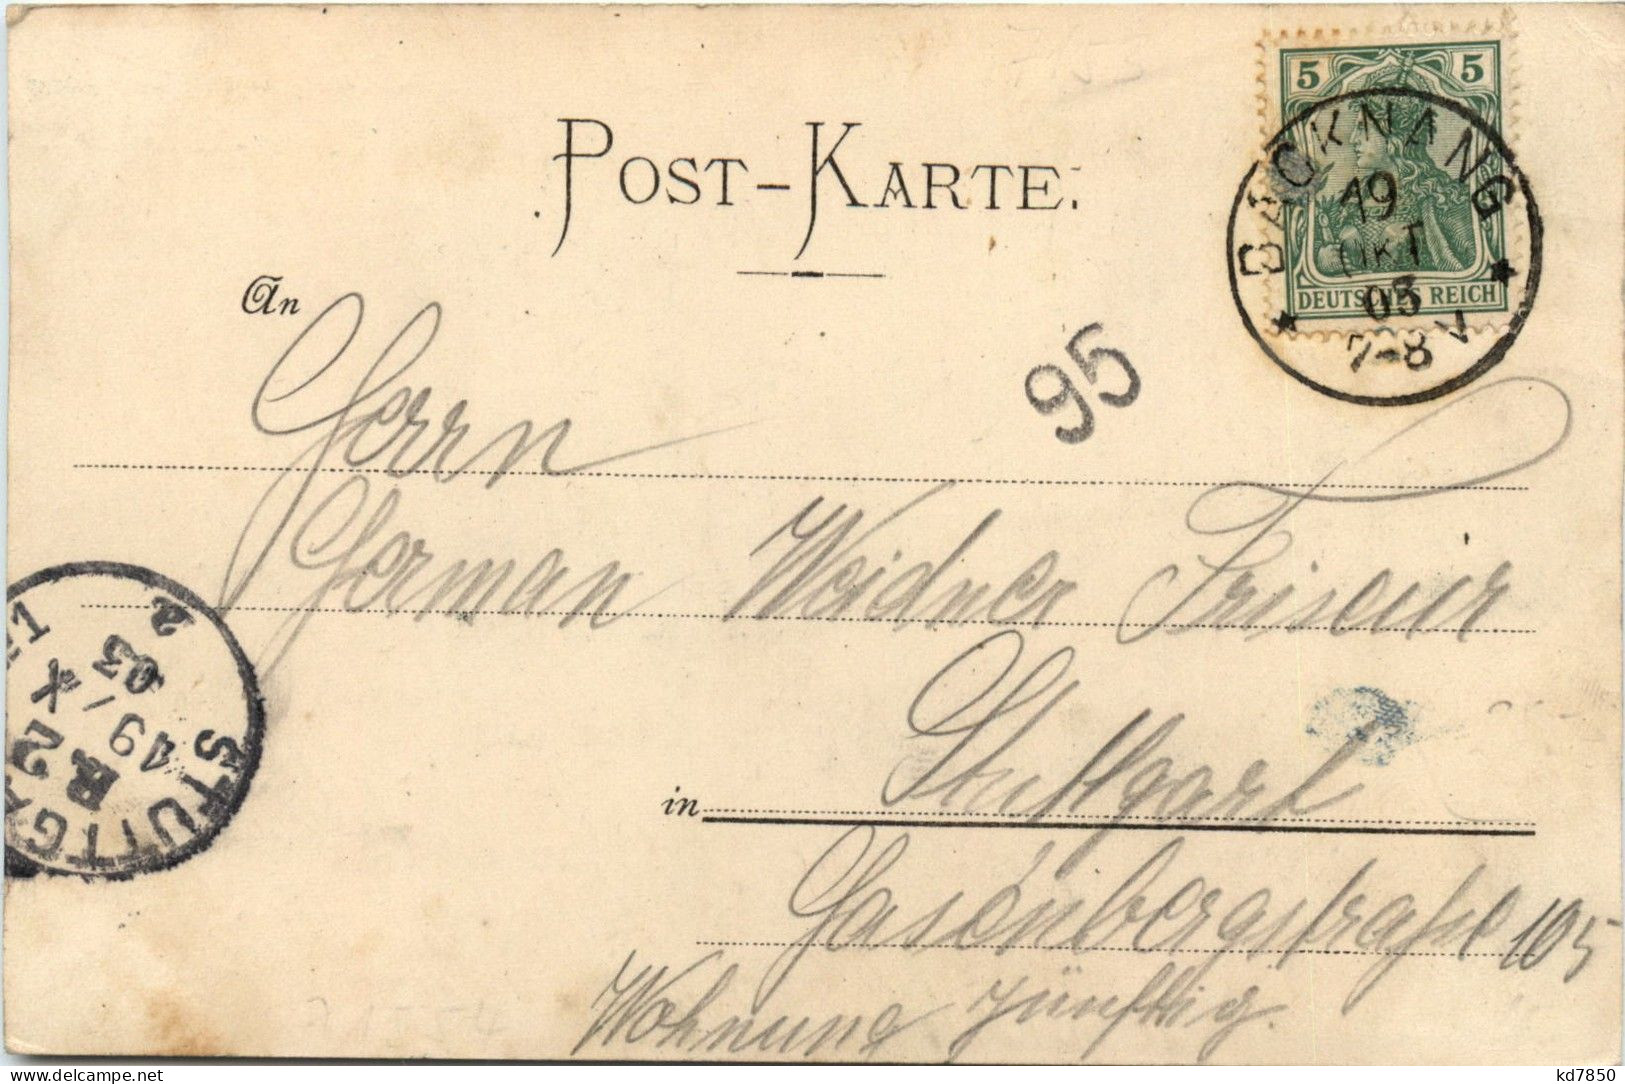 POST-KARTE.
5 5
DEUTSCHES REICH
BACKNANG
19
OKT
03
7-8 V
An
95
Herrn
Herman Weidner Friseur
in Stuttgart
Hasenbergstraße 105
Wohnung
STUTTGA
19/X
03
kd7850